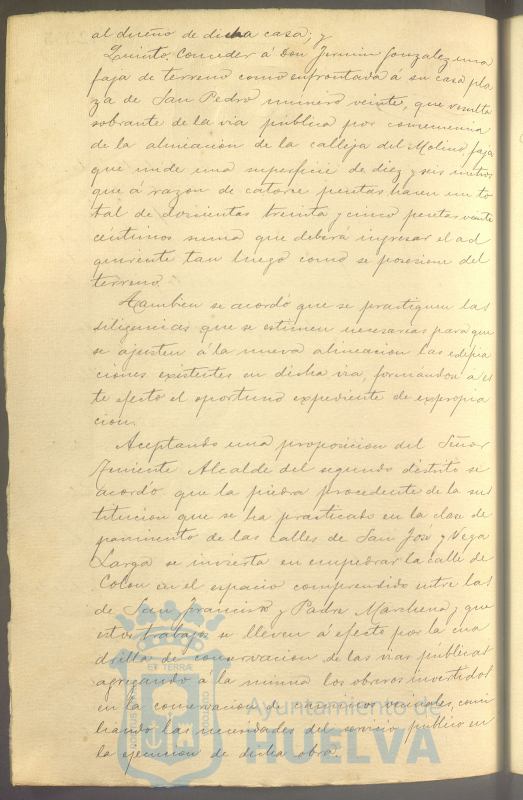 al dueño de dicha casa; y
Quinto. Conceder á Don Fermin Gonzalez una
faja de terreno como enfrontada á su casa pla
za de San Pedro número veinte, que resulta
sobrante de la via pública por consecuencia
de la alineacion de la calleja del Molino, faja
que mide una superficie de diez y seis metros
que á razon de catorce pesetas hacen un to
tal de doscientas treinta y cinco pesetas veinte
centimos suma que deberá ingresar el ad
quirente tan luego como se posesione del
terreno.
Tambien se acordó que se practiquen las
diligencias que se estimen necesarias para que
se ajusten á la nueva alineacion las edifica
ciones existentes en dicha via, formándose á es
te efecto el oportuno expediente de expropia
cion.
Aceptando una proposicion del Señor
Teniente Alcalde del segundo distrito se
acordó que la piedra procedente de la sus
titucion que se ha practicado en la clase de
pavimento de las calles de San José y Vega
Larga se invierta en empedrar la calle de
Colon en el espacio comprendido entre las
de San Francisco y Padre Marchena y que
estos trabajos se lleven á efecto por la cua
drilla de conservacion de las vias publicas
agregando á la misma los obreros invertidos
en la conservacion de caminos vecinales, conci
liando las necesidades del servicio público en
la ejecucion de dicha obra.
Ayuntamiento de
HUELVA